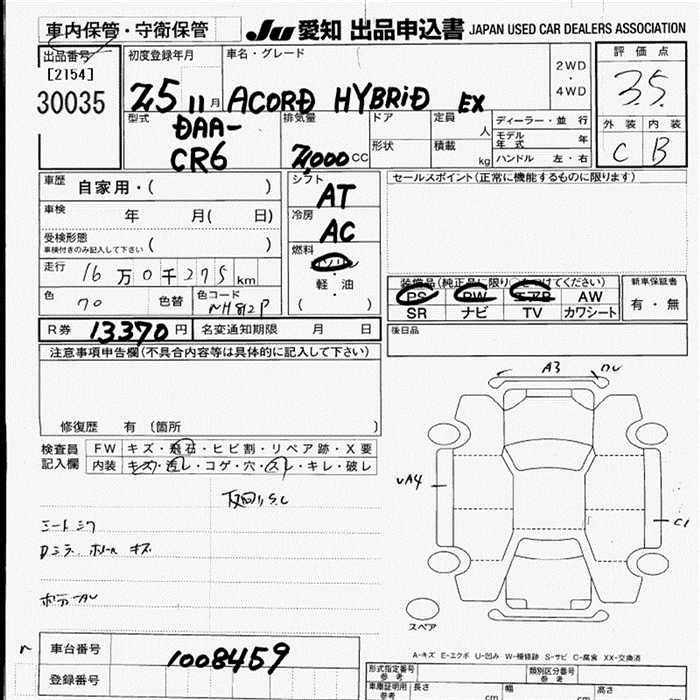 車内保管・守衛保管
Ju 愛知 出品申込書 JAPAN USED CAR DEALERS ASSOCIATION
出品番号
[2154]
30035
初度登録年月
25 11 月
車名・グレード
ACORD HYBRID EX
2WD
・
4WD
評価点
3.5
外装 内装
C B
型式
DAA-
CR6
排気量
2,000 CC
ドア
形状
定員
人
積載
kg
ディーラー・並行
モデル年式 年
ハンドル 左・右
車歴
自家用・( )
車検
年 月( 日)
受検形態
車検付きのみ記入して下さい ( )
走行 16 万 0 千 275 km
色 70 色替 色コード NH812P
R券 13370 円 名変通知期限 月 日
シフト
AT
冷房
AC
燃料
ガソリン
・
軽・油
( )
セールスポイント(正常に機能するものに限ります)
装備品(純正品に限り○をつけてください)
PS PW エアB AW
SR ナビ TV カワシート
新車保証書
有・無
後日品
注意事項申告欄(不具合内容等は具体的に記入して下さい)
修復歴 有 (箇所 )
検査員
記入欄
FW キズ・飛石・ヒビ割・リペア跡・X要
内装 キズ・汚レ・コゲ・穴・スレ・キレ・破レ
シートシワ
Dミラ、ホイール キズ
A3
A4
C1
スペア
A-キズ E-エクボ U-凹み W-補修跡 S-サビ C-腐食 XX-交換済
車台番号 1008459
登録番号
形式指定番号
参考
類別区分番号
参考
車庫証明用
参考
長さ cm 幅 cm 高さ cm